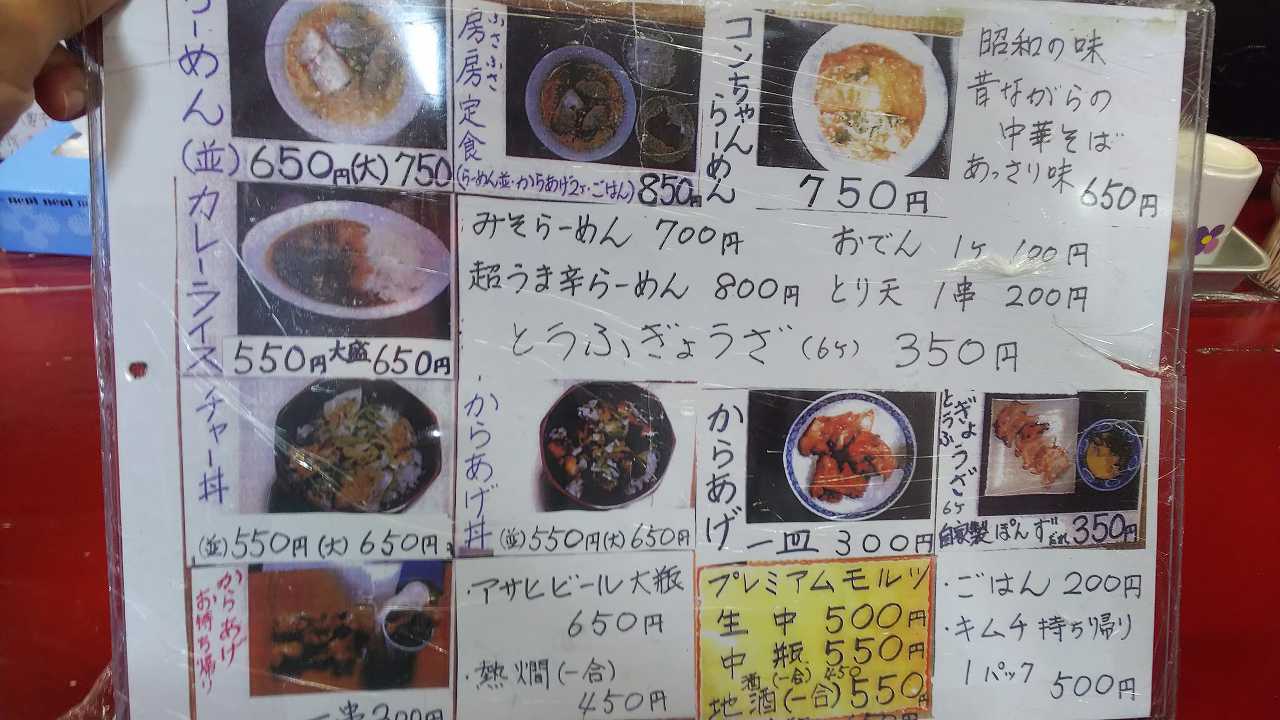 らーめん
(並) 650円 (大) 750
房房定食
ふさふさ
(らーめん並・からあげ2ケ・ごはん) 850円
コンちゃん
らーめん
750円
昭和の味
昔ながらの
中華そば
あっさり味
650円
カレーライス
550円 大盛 650円
みそらーめん 700円
おでん 1ケ 100円
超うま辛らーめん 800円
とり天 1串 200円
とうふぎょうざ (6ケ) 350円
チャー丼
(並) 550円 (大) 650円
からあげ丼
(並) 550円 (大) 650円
からあげ
一皿 300円
とうふ
ぎょうざ
6ケ
自家製ぽんずだれ 350円
からあげ
お持ち帰り
一串 300円
・アサヒビール大瓶
650円
・熱燗(一合)
450円
プレミアムモルツ
生中 500円
中瓶 550
酒(一合) 450
地酒(一合) 550円
・ごはん 200円
・キムチ持ち帰り
1パック 500円